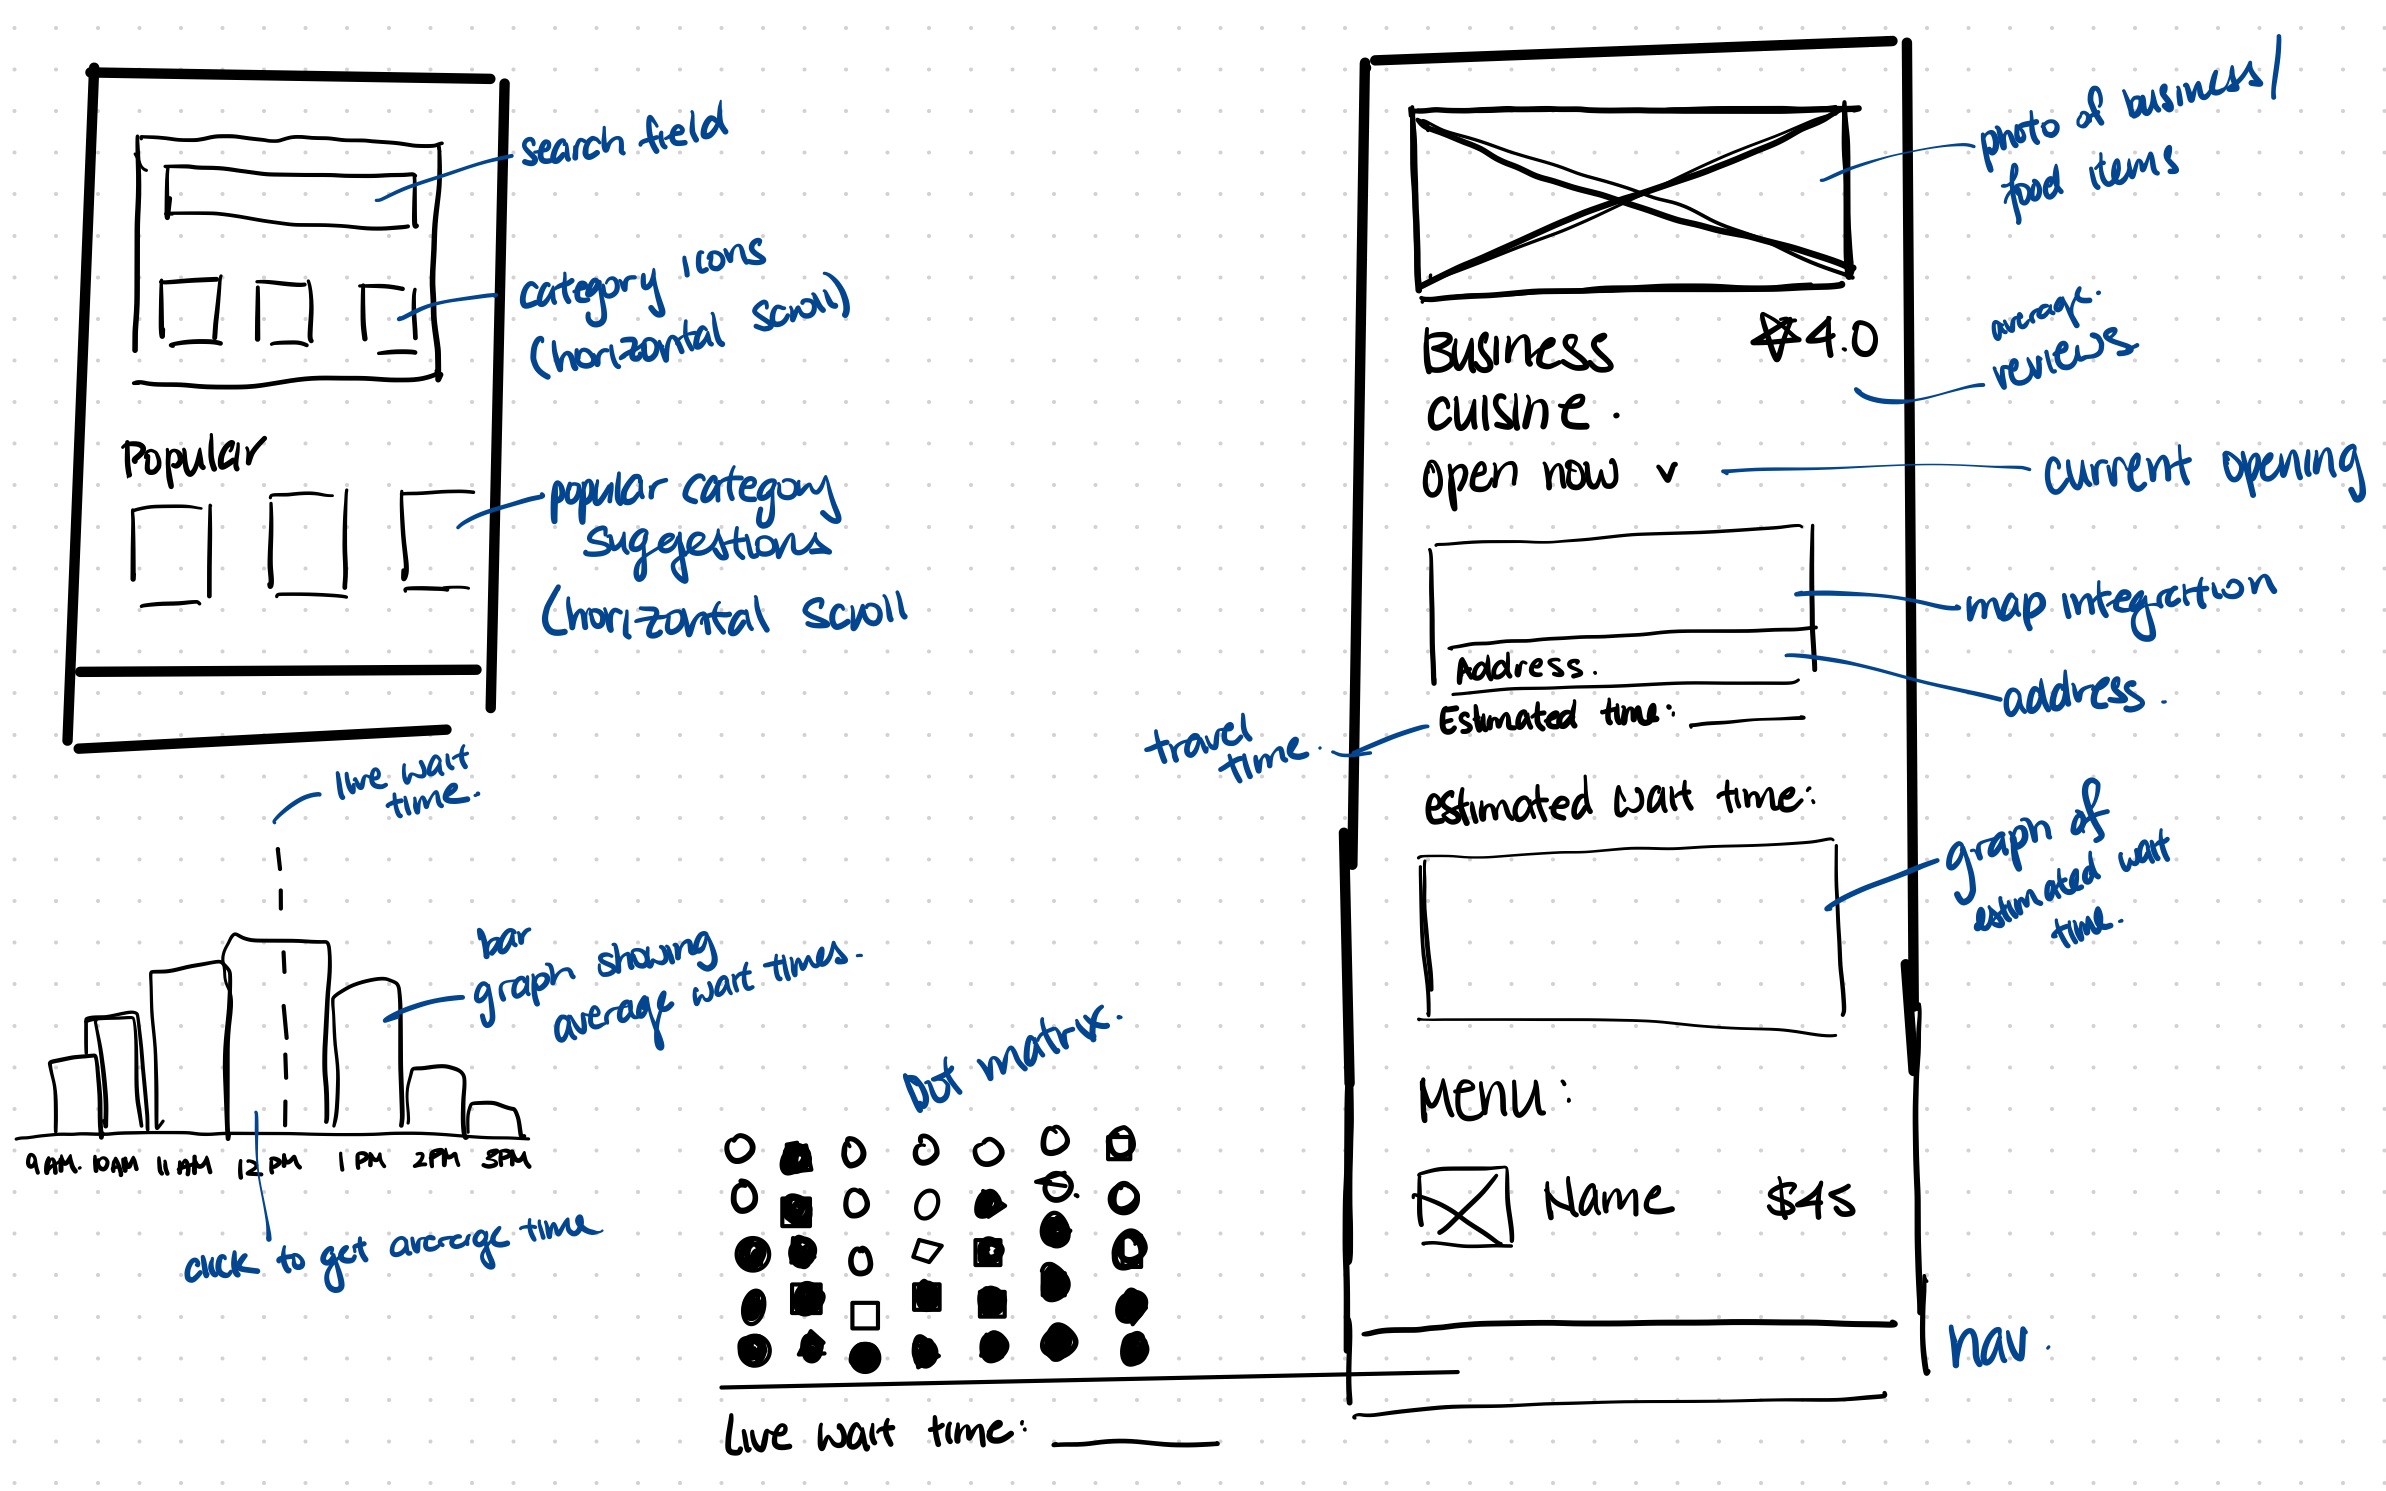 search field
category icons
(horizontal scroll)
Popular
popular category
suggestions
(horizontal scroll
live wait
time.
bar
graph showing
average wait times.
9 AM. 10AM 11 AM 12 PM 1 PM 2PM 3PM
click to get average time
Dot matrix.
Live wait time:
photo of business/
food items
Business ☆4.0
cuisine.
open now ˅
average.
reviews
current opening
map integration
Address.
address.
Estimated time:
travel
time.
estimated wait time:
graph of
estimated wait
time.
Menu:
Name $45
nav.